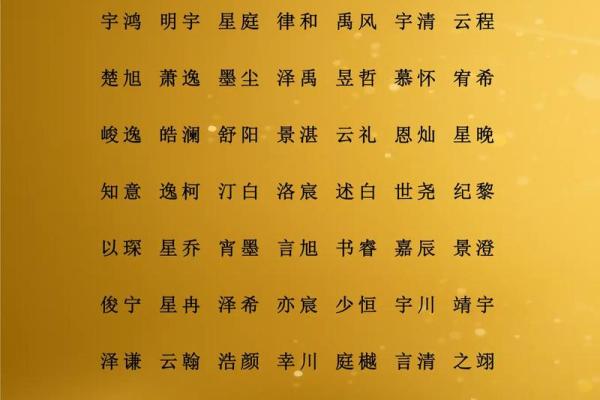 宇鸿 明宇 星庭 律和 禹风 宇清 云程
楚旭 萧逸 墨尘 泽禹 昱哲 慕怀 宥希
峻逸 皓澜 舒阳 景湛 云礼 恩灿 星晚
知意 逸柯 汀白 洛宸 述白 世尧 纪黎
以琛 星乔 宵墨 言旭 书睿 嘉辰 景澄
俊宁 星冉 泽希 亦宸 少恒 宇川 靖宇
泽谦 云翰 浩颜 幸川 庭樾 言清 之翊